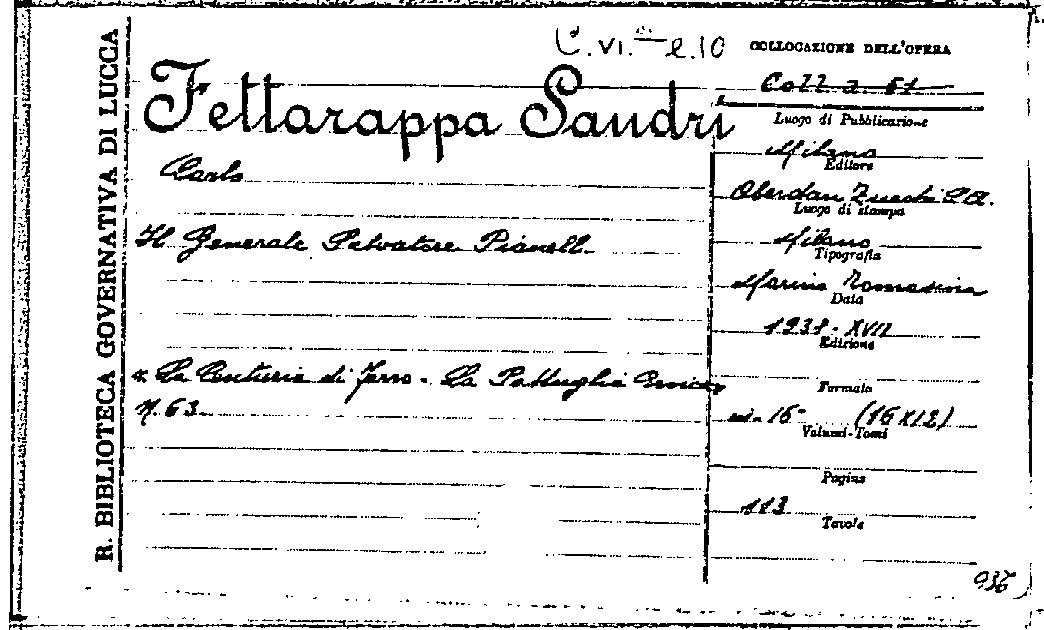 R. BIBLIOTECA GOVERNATIVA DI LUCCA
C. VI. e. 10
COLLOCAZIONE DELL'OPERA
Coll a. 61
Fettarappa Sandri
Carlo
Il Generale Salvatore Pianell
« La Centuria di ferro - La Pattuglia Eroica»
N. 63
Luogo di Pubblicazione
Milano
Editore
Oberdan Zucchi S.A.
Luogo di stampa
Milano
Tipografia
Data
1938 - XVII
Edizione
Formato
in-16° (16X12)
Volumi-Tomi
Pagine
113
Tavole
936